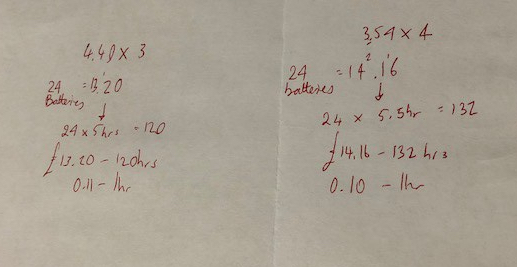 4.40 x 3
24 = 13.20
Batteries
24 x 5hrs = 120
£13.20 - 120hrs
0.11 - 1hr
3.54 x 4
24 = 14.16
batteries
24 x 5.5hr = 132
£14.16 - 132 hrs
0.10 - 1hr